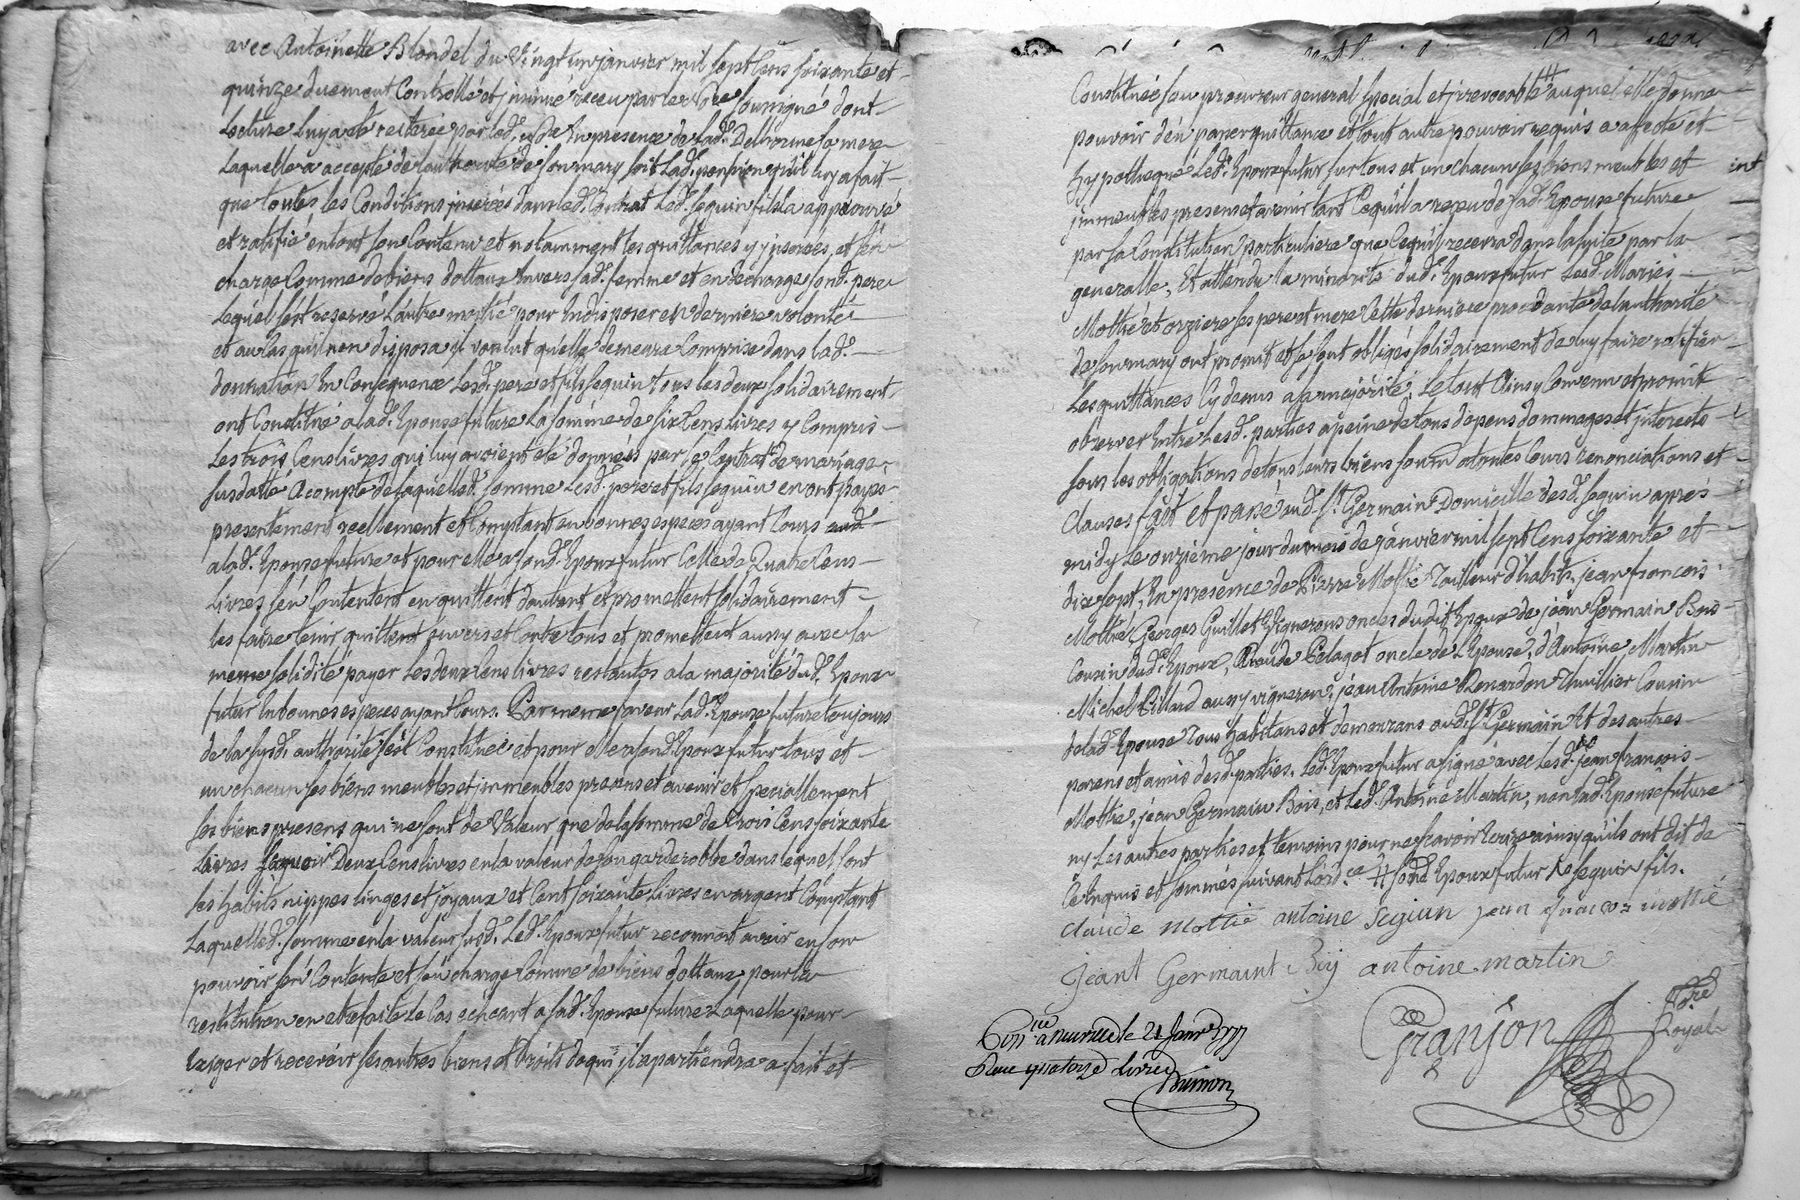 avec Antoinette Blondel du Vingt un janvier mil sept Cens soixante et
quinze duement Controllé et insinué receu par le No.re soussigné dont
Lecture luy a eté reiterée par led. en presence de lad. Delhorme sa mere
Laquelle a accepté de lauthorité de son mary soit Lad. pension qu'il luy a fait
que toutes les Conditions inserées dans led. Contrat Led. seguin fils la approuvé
et ratifié en tout son Contenu et notamment les quittances y inserées, et s'en
charge Comme de biens dottaux Envers sad. femme et en decharge sond. pere
Lequel s'est reservé L'autre moitié pour En disposer en derniere volonté
et au Cas qu'il n'en disposa il voulut quelle demeura Comprise dans lad.
donnation En Consequence Lesd. pere et fils seguin tous les deux solidairement
ont Constitué a lad. Epouse future La somme de six Cens livres y Compris
Les trois Cens livres qui luy avoient eté données par le Contrat de mariage
susdatté A compte de laquelle d. somme Lesd. pere et fils seguin en ont payé
presentement reellement et Comptant en bonnes especes ayant Cours
a lad. Epouse future et pour elle a sond. Epoux futur Celle de Quatre Cens
Livres s'en Contentent en quittent d'autant et promettent solidairement
les faire tenir quittent envers et Contre tous et promettent aussy avec la
meme solidité payer Les deux Cens livres restantes a la majorité dud. Epoux
futur En bonnes especes ayant Cours. Par meme faveur Lad. Epouse future toujours
de la susd. authorité s'est Constituée et pour elle a sond. Epoux futur tous et
un chacun ses biens meubles et immeubles presens et avenir et specialement
ses biens presens qui ne sont de Valeur que de la somme de trois Cens soixante
Livres sçavoir Deux Cens livres en la valeur de son garderobbe dans lequel sont
ses habits nippes linges et joyaux et Cent soixante Livres en argent Comptant
Laquelle d. somme en la valeur susd. Led. Epoux futur reconnoit avoir en son
pouvoir s'en Contente et s'en charge Comme de biens dottaux pour la
restitution en etre faite le Cas echeant a sad. Epouse future Laquelle pour
exiger et recevoir ses autres biens et Droits de qui il apartiendra a fait et
Constitué son procureur general special et irrevocable # auquel elle donne
pouvoir d'en passer quittance et tout autre pouvoir requis a afecté et
hypothequé Led. Epoux futur sur tous et un chacun ses biens meubles et
immeubles presens et avenir tant Cequ'il a reçu de sad. Epouse future
par sa Constitution particuliere que Cequ'il recevra dans la suite par la
generalle, Et attendu la minorité dud. Epoux futur Lesd. Mariés
Mottié et orziere ses pere et mere Cette derniere procedante de lauthorité
de son mary ont promit et se sont obligés solidairement de luy faire ratifier
Les quittances Cy dessus a sa majorité, Le tout Ainsy Convenu et promit
observer Entre Lesd. parties a peine de tous depens dommages et interests
sous les obligations de tous leurs biens soum. a toutes Cours renonciations et
Clauses fait et passé aud. St. Germain Domicille desd. seguin aprés
midy Le onzième jour du mois de janvier mil sept Cens soixante et
dix sept, En presence de Pierre Mottié Tailleur d'habits, jean francois
Mottié, Georges Guillet Vignerons oncles dudit Epoux de jean Germain Bois
Cousin dud. Epoux, Claude Pelagot oncle de L'Epouse, d'Antoine Martin
Michel Billard aussy vigneron, jean Antoine Renardon Cousin
de lad. Epouse Tous habitans et demeurans aud. St. Germain Et des autres
parens et amis desd. parties. Led. Epoux futur a signé avec Lesd. jean francois
Mottié, jean Germain Bois, et Led. Antoine Martin, non Lad. Epouse future
ny Les autres parties et temoins pour ne sçavoir Ecrire ainsy qu'ils ont dit de
Ce enquis et sommés suivant Lord.ce # sond. Epoux futur seguin fils.
claude mottié antoine Segiun jean francois mottié
jeant Germaint Bıy antoine martin
Granjon No.re Royal
Con.lé a le 21 Janv. 1777
Reçu quatorze Livres